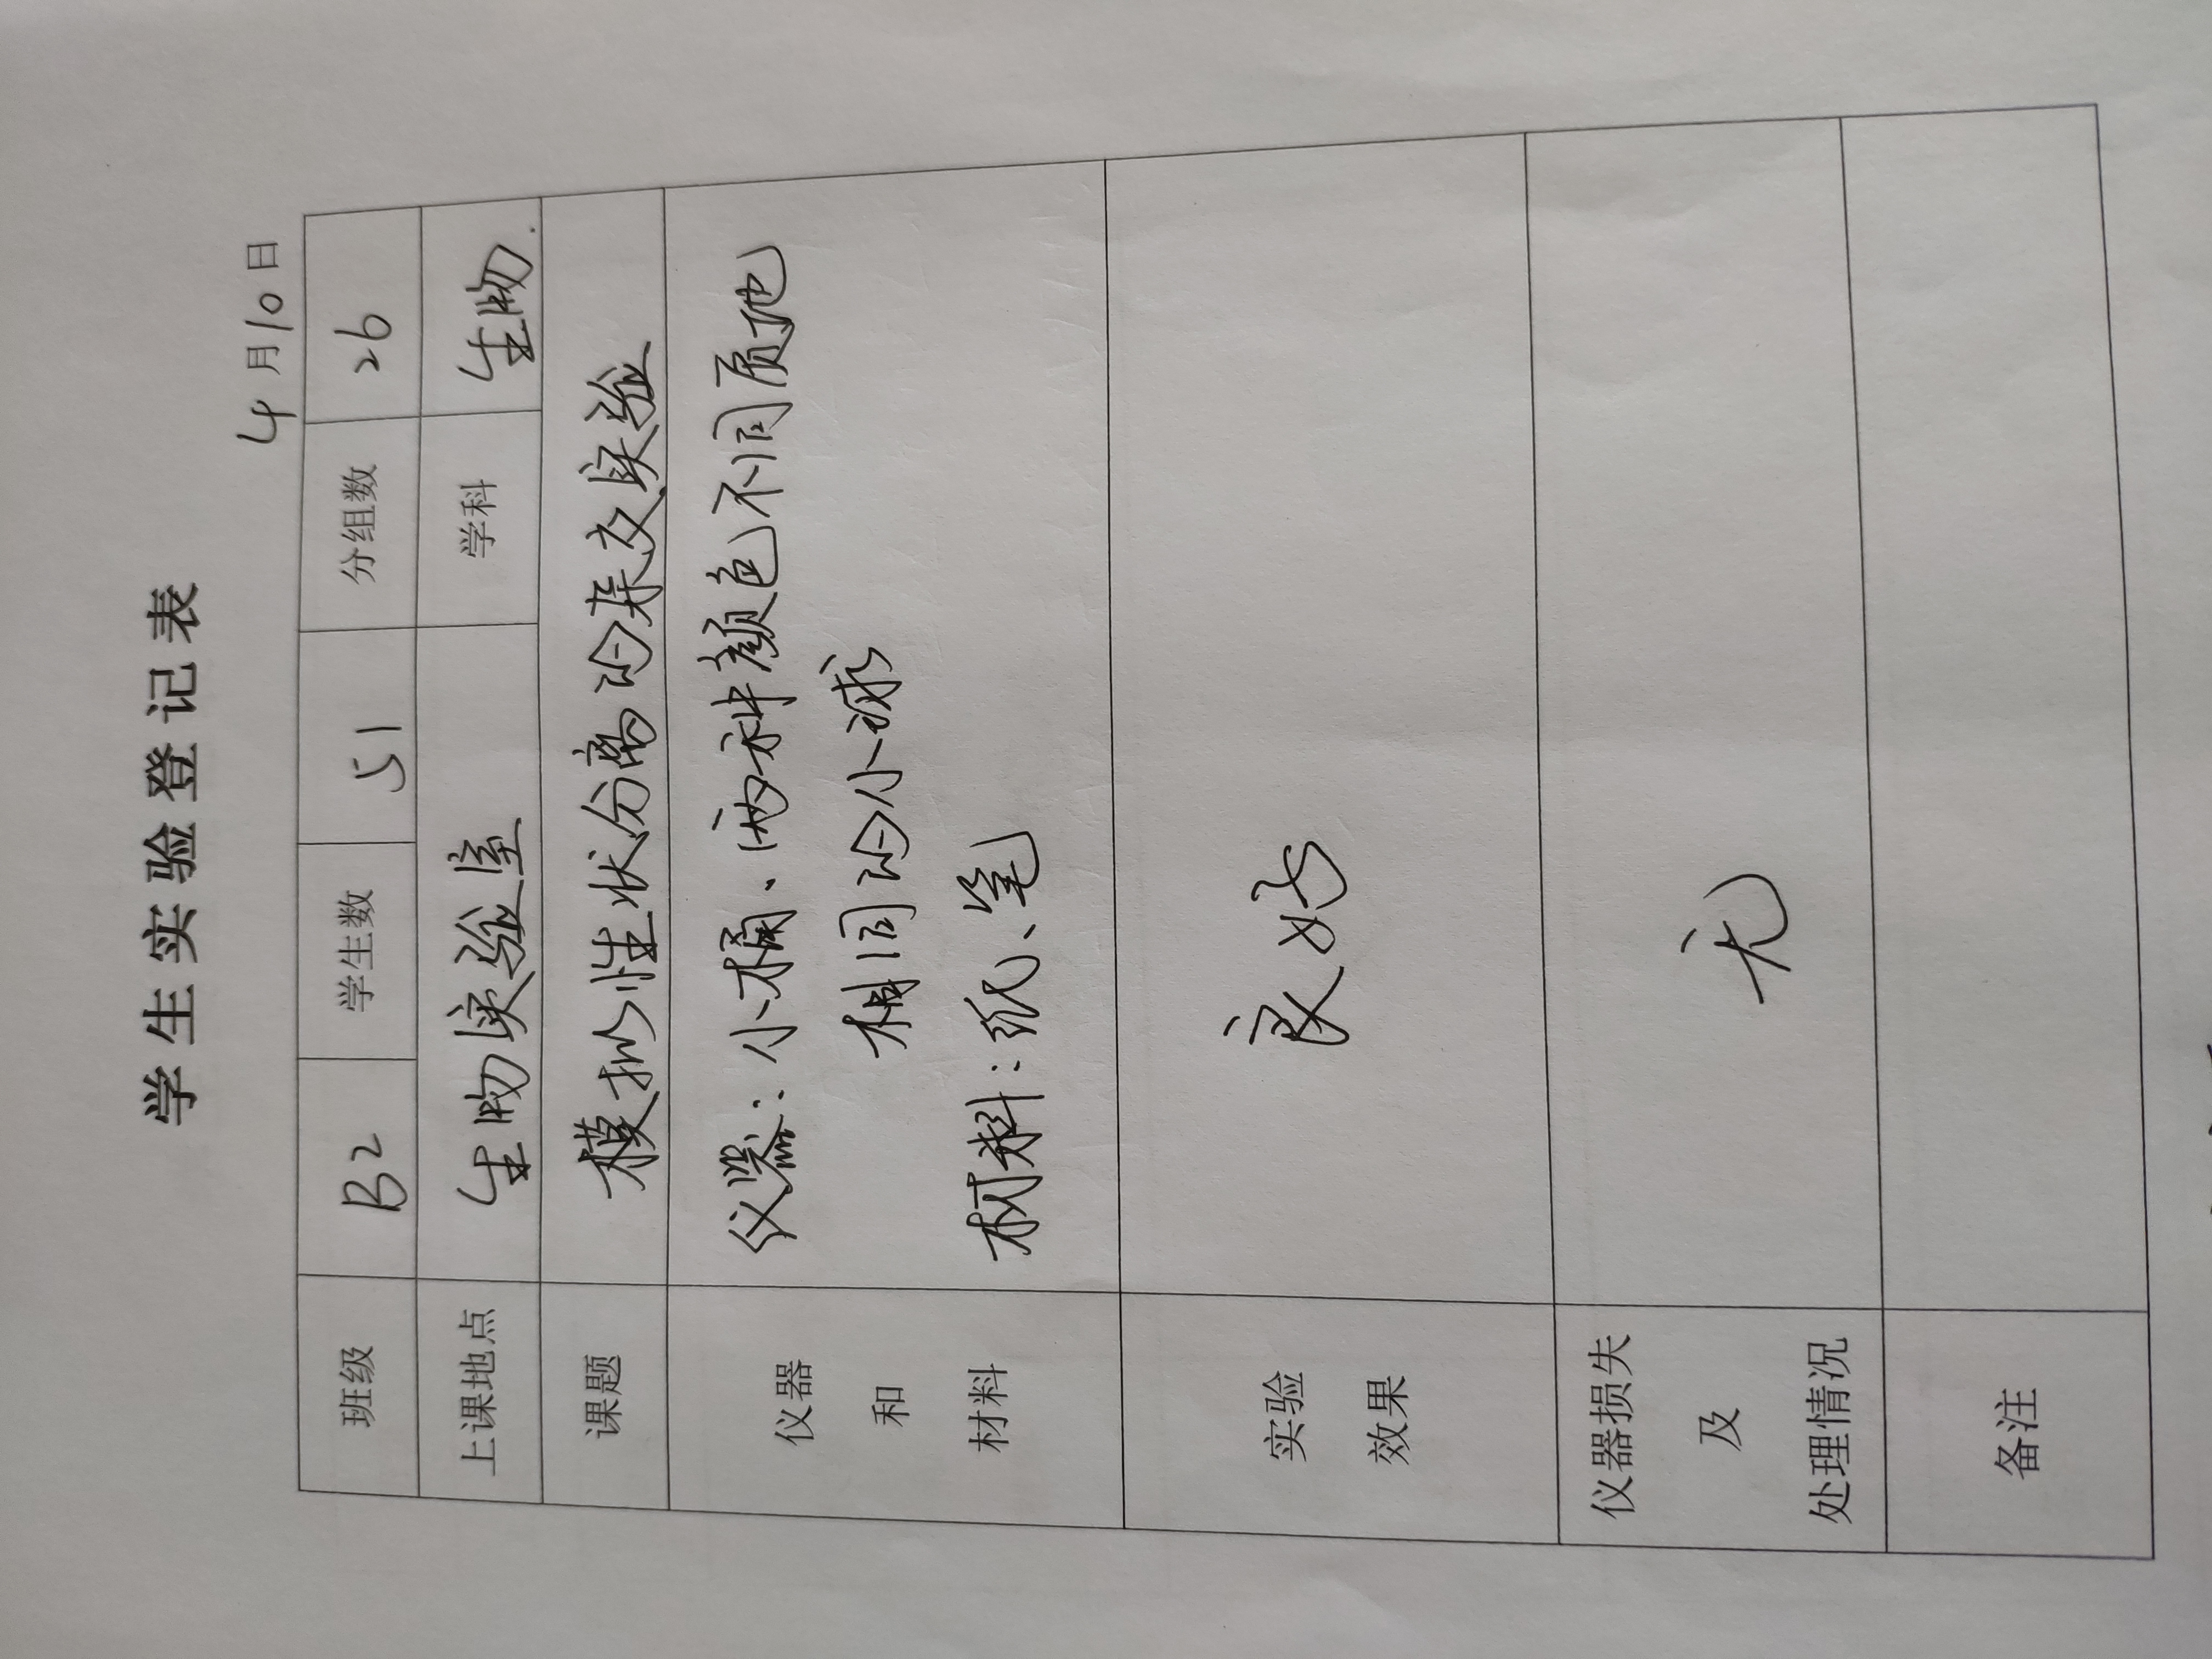 学生实验登记表
4月10日
班级 B2 学生数 51 分组数 26
上课地点 生物实验室 学科 生物.
课题 模拟性状分离的杂交实验
仪器 仪器：小桶、两种颜色不同质地
和 相同的小球
材料 材料：纸、笔
实验
效果 良好
仪器损失
及 无
处理情况
备注